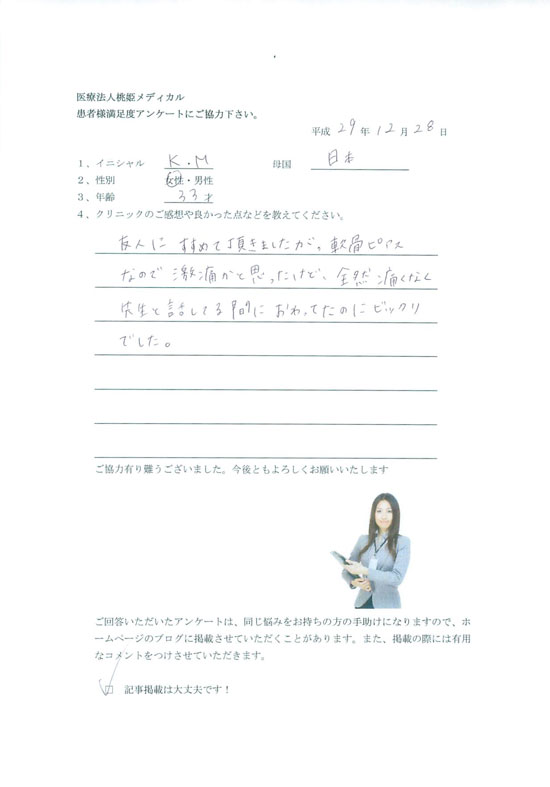 医療法人桃姫メディカル
患者様満足度アンケートにご協力下さい。
平成 29 年 12 月 28 日
1、イニシャル K.M 母国 日本
2、性別 女性・男性
3、年齢 33才
4、クリニックのご感想や良かった点などを教えてください。
友人に すすめて頂きましたが。軟骨ピアス
なので 激痛かと思ったけど、全然 痛くなく
先生と話してる間に おわってたのに ビックリ
でした。
ご協力有り難うございました。今後ともよろしくお願いいたします
ご回答いただいたアンケートは、同じ悩みをお持ちの方の手助けになりますので、ホ
ームページのブログに掲載させていただくことがあります。また、掲載の際には有用
なコメントをつけさせていただきます。
記事掲載は大丈夫です！